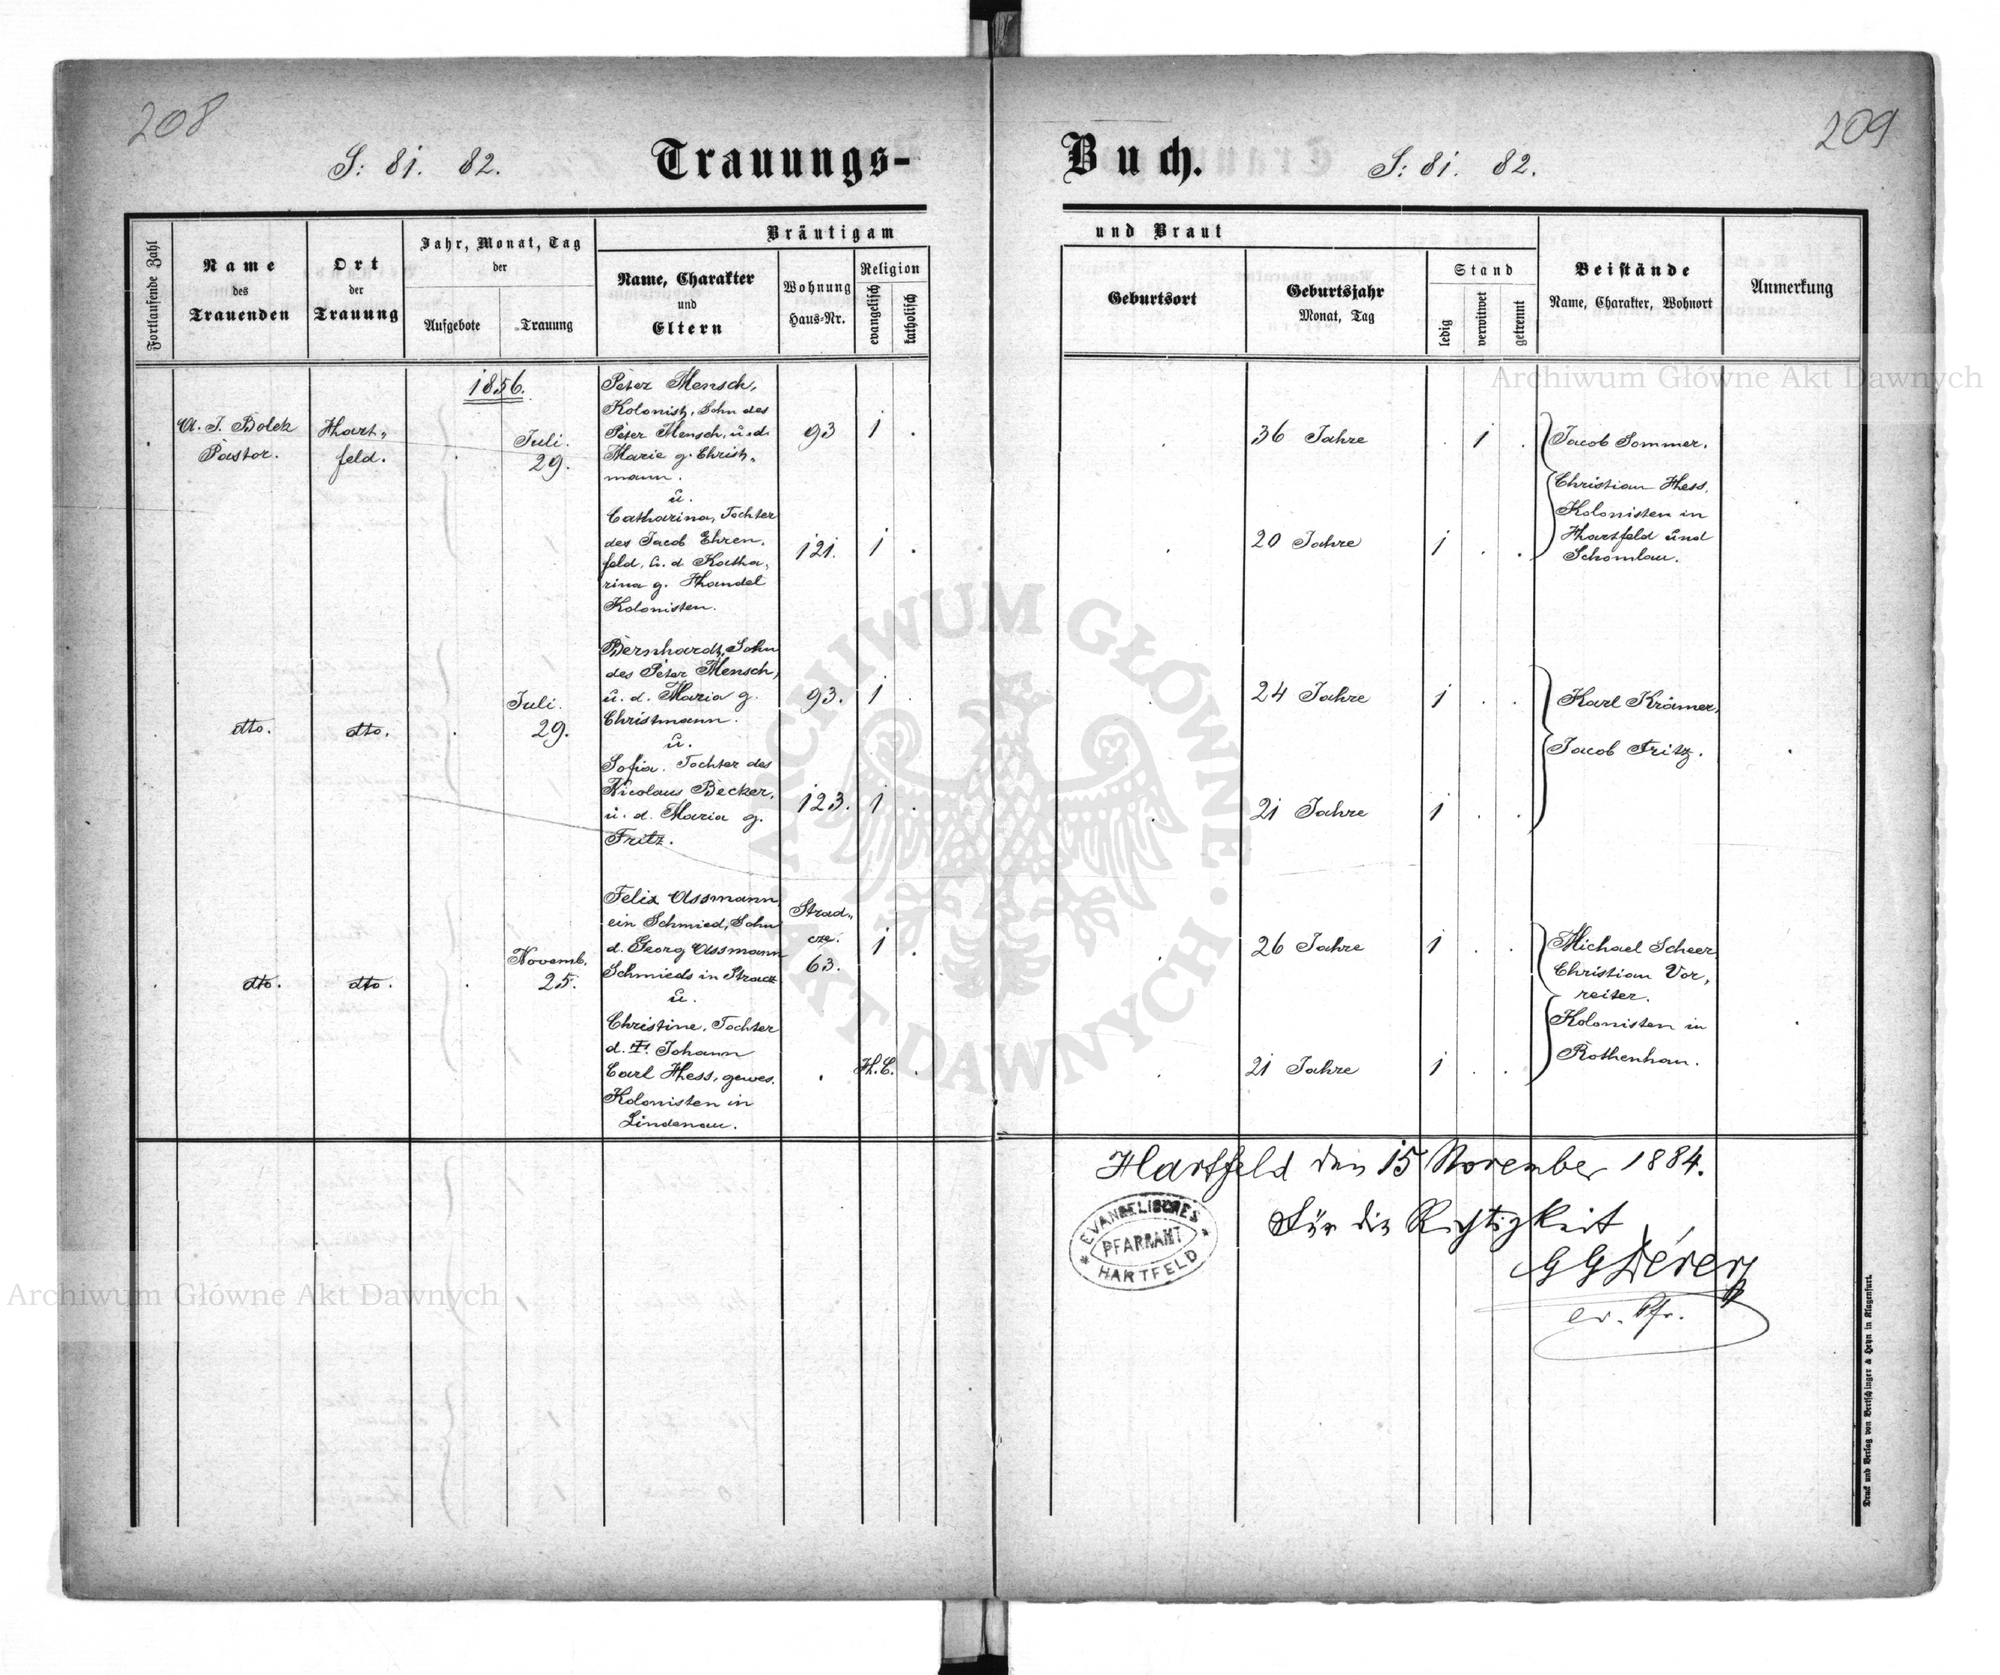 208
209
S: 81. 82.
Trauungs-
Buch.
S: 81. 82.
Fortlaufende Zahl
Name
des
Trauenden
Ort
der
Trauung
Jahr, Monat, Tag
der
Aufgebote
Trauung
Bräutigam
Name, Charakter
und
Eltern
Wohnung
Haus-Nr.
Religion
evangelisch
katholisch
und Braut
Geburtsort
Geburtsjahr
Monat, Tag
Stand
ledig
verwitwet
getrennt
Beistände
Name, Charakter, Wohnort
Anmerkung
1856.
A. J. Bolek
Pastor.
Hart„
feld.
Juli.
29.
Peter Mensch,
Kolonist, Sohn des
Peter Mensch, u. d.
Marie g. Christ„
mann.
u.
Catharina, Tochter
des Jacob Ehren„
feld, u. d. Katha„
rina g. Handel
Kolonisten.
93
1
121.
1
36 Jahre
1
20 Jahre
1
Jacob Sommer.
Christian Hess,
Kolonisten in
Hartfeld und
Schomlau.
dto.
dto.
Juli.
29.
Bernhardt, Sohn
des Peter Mensch,
u. d. Maria g.
Christmann.
u.
Sofia. Tochter des
Nicolaus Becker,
u. d. Maria g.
Fritz.
93.
1
123.
1
24 Jahre
1
21 Jahre
1
Karl Krämer,
Jacob Fritz.
dto.
dto.
Novemb.
25.
Felix Assmann
ein Schmied, Sohn
d. Georg Assmann
Schmieds in Stradz
u.
Christine, Tochter
d. † Johann
Carl Hess, gewes.
Kolonisten in
Lindenau.
Strad„
cze.
63.
1
H. C.
26 Jahre
1
21 Jahre
1
Michael Scheer
Christian Vor„
reiter.
Kolonisten in
Rothenhan.
Hartfeld den 15 November 1884.
Für die Richtigkeit
ev. Pfr.
EVANGELISCHES
PFARRAMT
HARTFELD
Druck und Verlag von Bertschinger & Heyn in Klagenfurt.
Archiwum Główne Akt Dawnych
Archiwum Główne Akt Dawnych
ARCHIWUM GŁÓWNE
AKT DAWNYCH